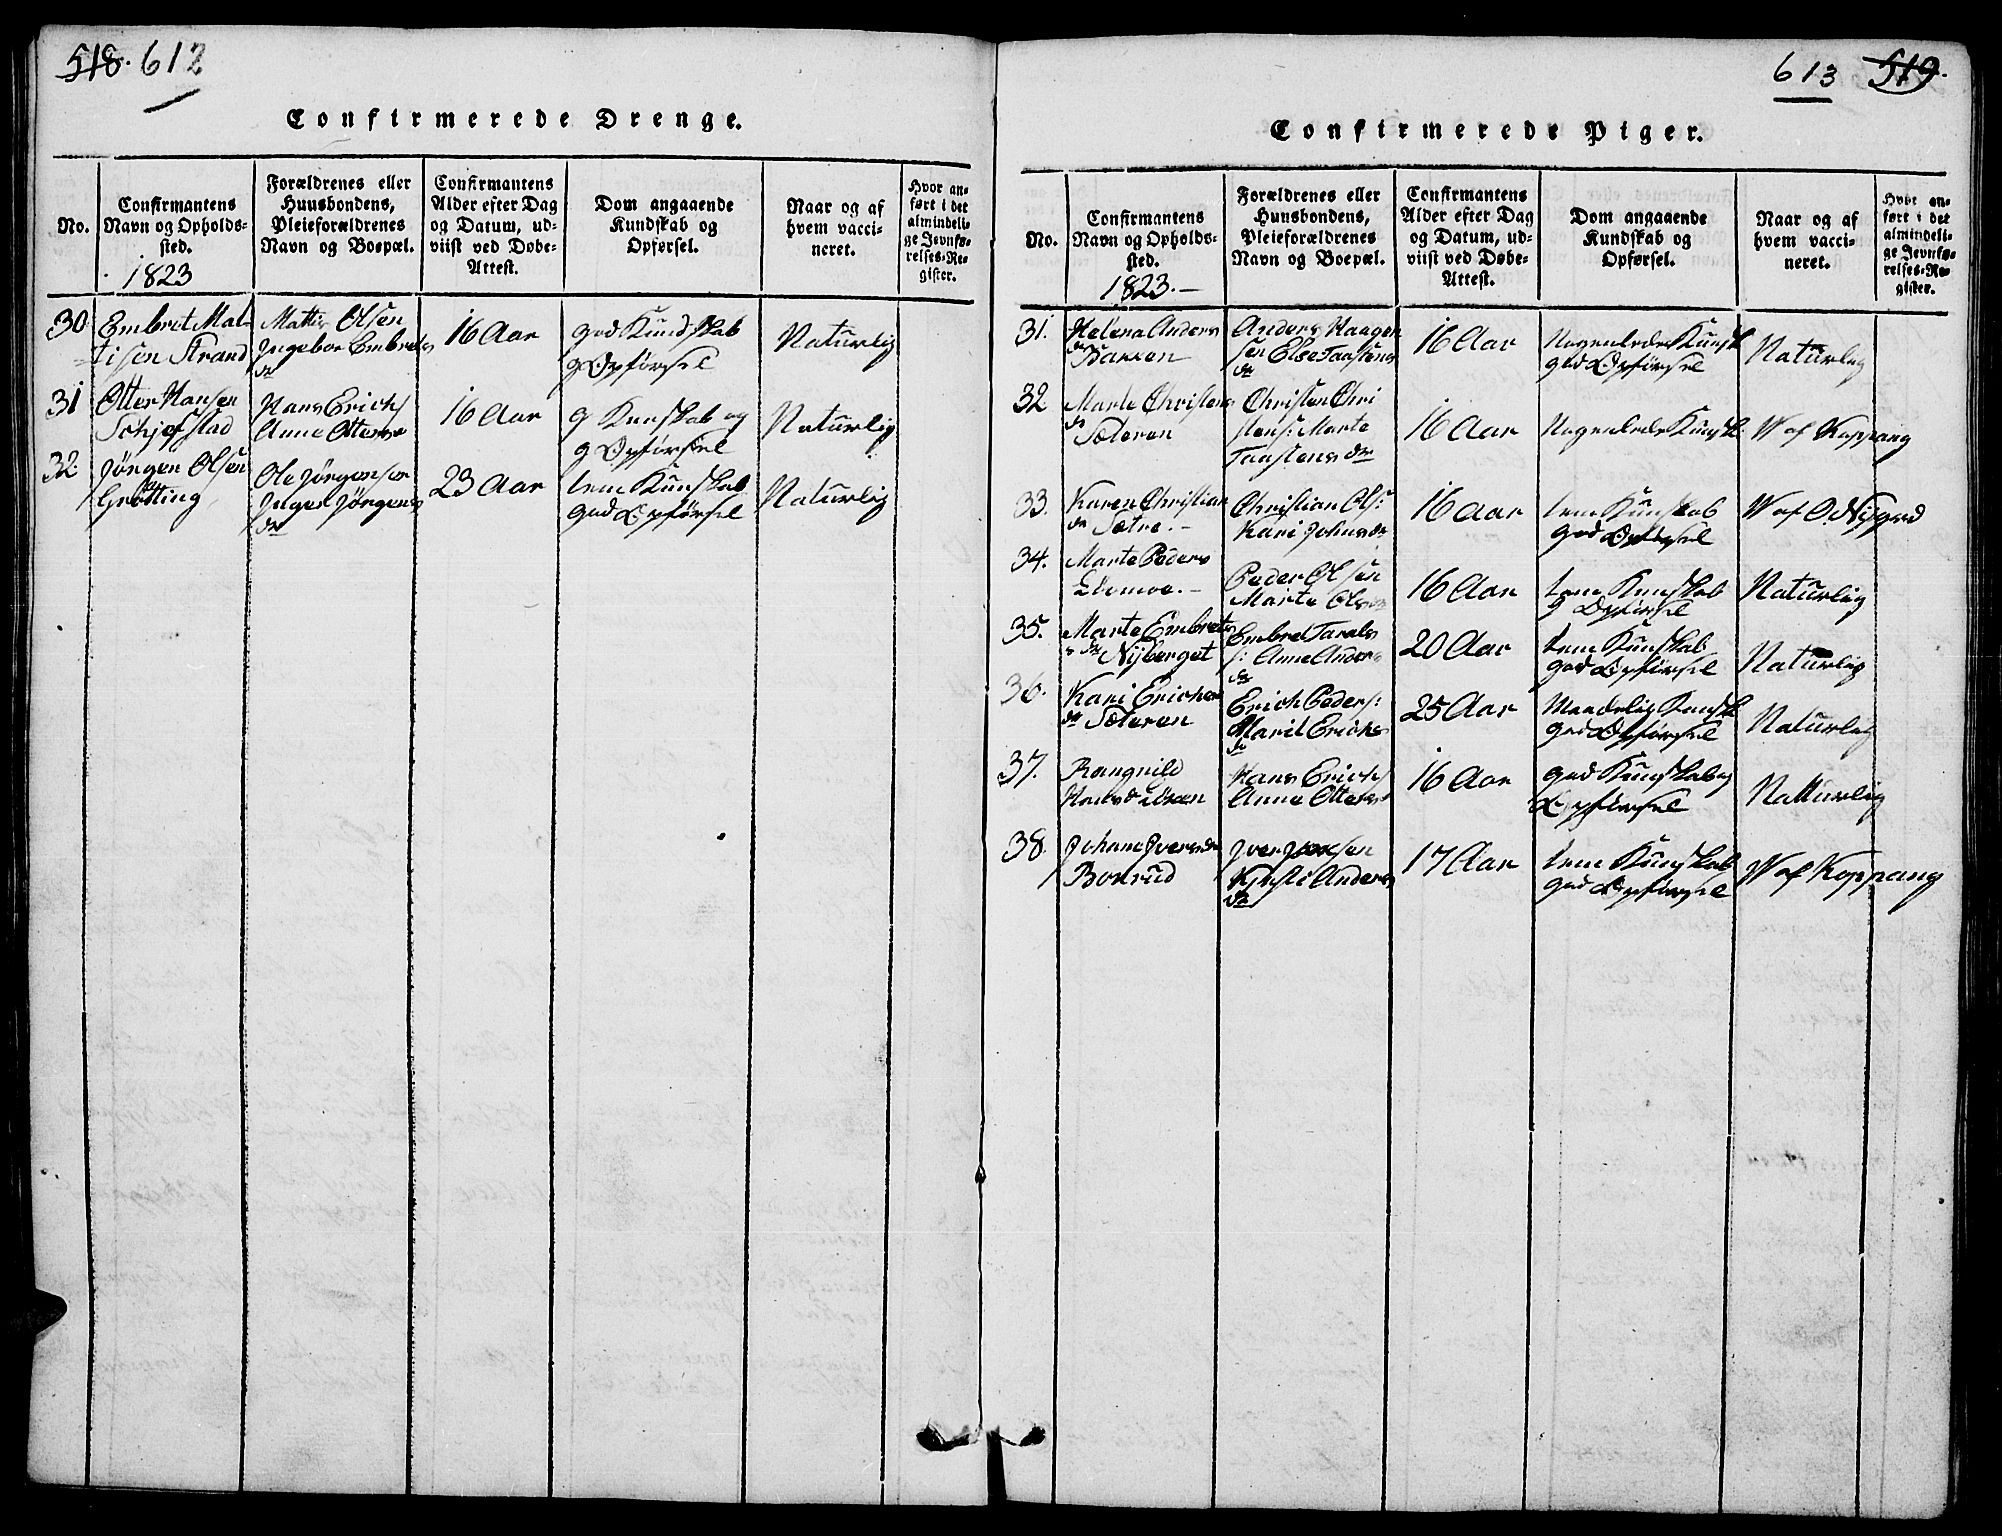 518. 612
Confirmerede Drenge.
No.
Confirmantens
Navn og Opholds-
sted.
1823
Forældrenes eller
Huusbondens,
Pleieforældrenes
Navn og Boepæl.
Confirmantens
Alder efter Dag
og Datum, ud-
viist ved Døbe-
Attest.
Dom angaaende
Kundskab og
Opførsel.
Naar og af
hvem vacci-
neret.
Hvor an-
ført i det
almindeli-
ge Jevnfø-
relses-Re-
gister.
30 Embret Mat-
tisen Strand
Mattis Olsen
Ingebor Embrets
dr
16 Aar
god Kundskab
g Opførsel
Naturlig
31 Otter Hansen
Schjefstad
Hans Erichs
Anne Ottersdr
16 Aar
g Kunskab og
g Opførsel
Naturlig
32. Jørgen Olsen
Grøtting
Ole Jørgensen
Inger Jørgens
dr
23 Aar
tem Kunskab
god Opførsel
Naturlig
613 519.
Confirmerede Piger.
No.
Confirmantens
Navn og Opholds-
sted.
1823.-
Forældrenes eller
Huusbondens,
Pleieforældrenes
Navn og Boepæl.
Confirmantens
Alder efter Dag
og Datum, ud-
viist ved Døbe-
Attest.
Dom angaaende
Kundskab og
Opførsel.
Naar og af
hvem vacci-
neret.
Hvor an-
ført i det
almindeli-
ge Jevnfø-
relses-Re-
gister.
31. Helena Anders
dr Bakken
Anders Haagen
sen Else Taastens
dr
16 Aar
Nogenlede Kunsk
god Opførsel
Naturlig
32 Marte Christens
dr Sæteren
Christen Chri
stens: Marte
Taastensdr
16 Aar
Nogenlede Kunsk.
W af Koppang
33. Karen Christian
dr Sætre.-
Christian Ols:
Kari Johnsdr
16 Aar
tem Kunskab
god Opførsel
W af O. Nijgard
34. Marte Peders
Løvmoe.-
Peder Olsen
Marte Ols
16 Aar
tem Kunskab
g Opførsel
Naturlig
35. Marte Embrets
dr Nijberget
Embret Tarals
s: Anne Anders
dr
20 Aar
tem Kunskab
god Opførsel
Naturlig
36. Kari Erichs
dr Sæteren
Erich Peders:
Marit Erichs
dr
25 Aar
Maadelig Kunsk
god Opførsel
Naturlig
37. Rangnild
Hansdr Løken
Hans Erichs
Anne Ottersdr
16 Aar
god Kunskab og
Opførsel
Natturlig
38. Johane Iversdr
Bonrud
Iver Jonsen
Kjersti Anders
dr
17 Aar
tem Kunskab
god Opførsel
W af Koppang